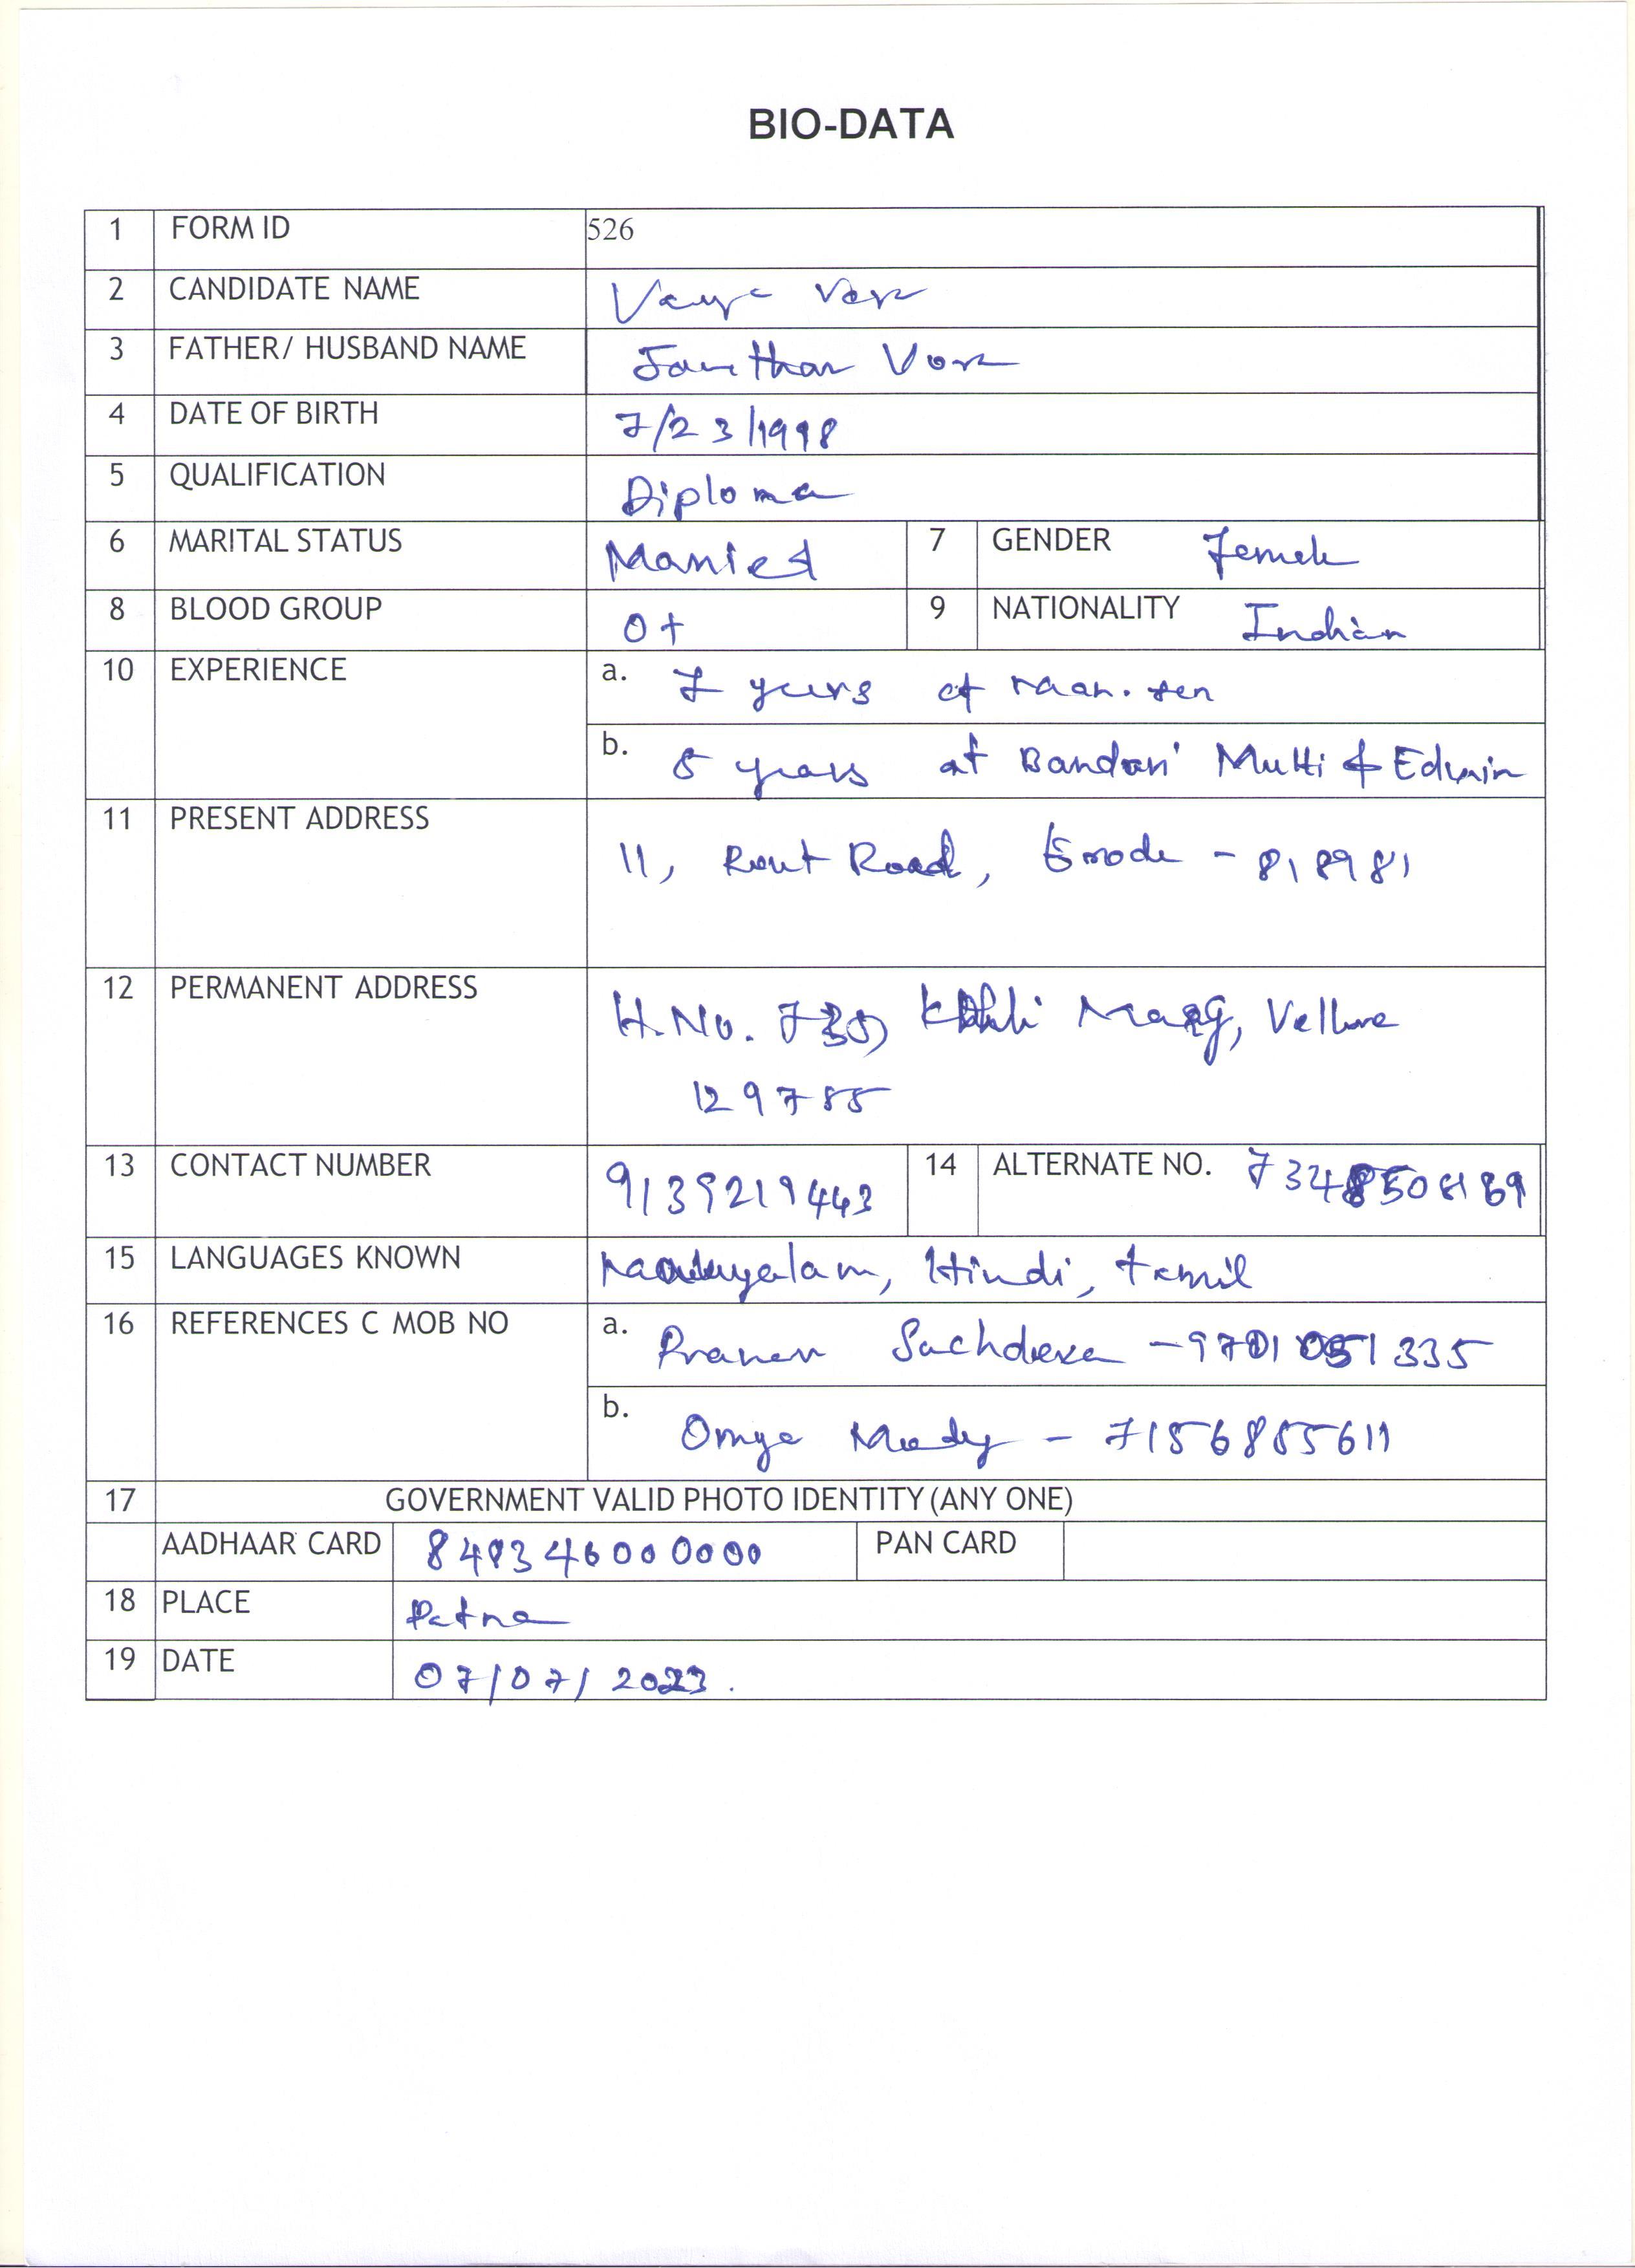 BIO-DATA
1 FORM ID 526
2 CANDIDATE NAME
3 FATHER/ HUSBAND NAME
4 DATE OF BIRTH 7/23/1998
5 QUALIFICATION Diploma
6 MARITAL STATUS Married 7 GENDER Female
8 BLOOD GROUP O+ 9 NATIONALITY Indian
10 EXPERIENCE a. 7 years at
b. 5 years at Multi & Edwin
11 PRESENT ADDRESS 11, Rout Road, Erode - 818981
12 PERMANENT ADDRESS H.No. Marg, Vellore
129755
13 CONTACT NUMBER 9139219443 14 ALTERNATE NO.
15 LANGUAGES KNOWN Hindi, Tamil
16 REFERENCES C MOB NO a. Sachdeva
b. Omya - 7156855611
17 GOVERNMENT VALID PHOTO IDENTITY (ANY ONE)
AADHAAR CARD 849346000000 PAN CARD
18 PLACE Patna
19 DATE 07/07/2023.